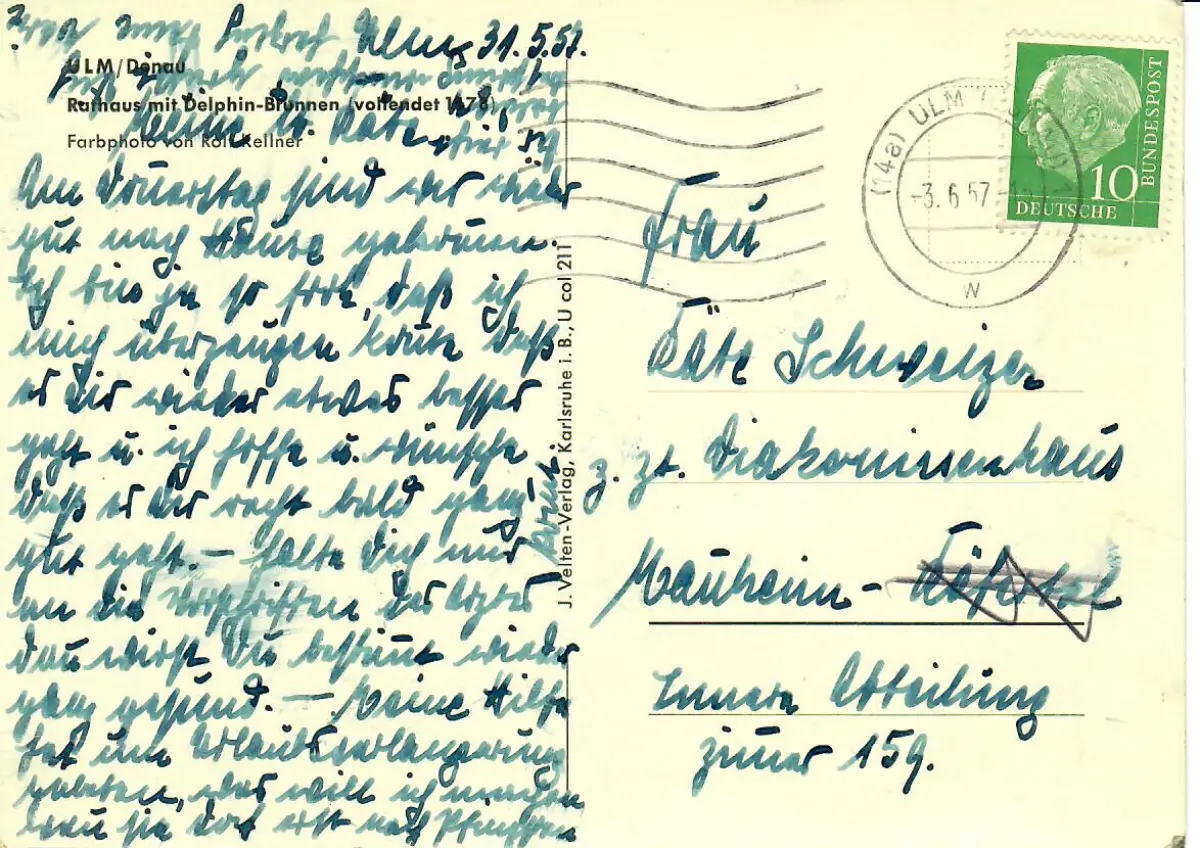 Ulm, 31.5.57.
ULM/Donau
Rathaus mit Delphin-Brunnen (vollendet 1
Farbphoto von Rolf Kellner
Meine lb. Käte
Am Donerstag sind wir wieder
gut nach Hause gekommen.
Ich bin ja so froh, daß ich
mich überzeugen konte daß
es dir wieder etwas besser
geht u. ich hoffe u. wünsche
daß es dir recht bald ganz
gut geht. — Halte Dich nur
an die Vorschriften des Arztes
dan wirst Du bestimt wieder
ganz gesund. — Meine Hilfe
hat um Urlaubsverlängerung
gebeten, was will ich machen
wen sie erst nach Pfingsten
komt.
J. Velten-Verlag, Karlsruhe i. B., U col 211
(14a) ULM
-3. 6. 57
w
10
DEUTSCHE
BUNDESPOST
Frau
Käte Schweizer
z. zt. Diakonissenhaus
Manheim - Käfertal
Innere Abteilung
Zimer 159.